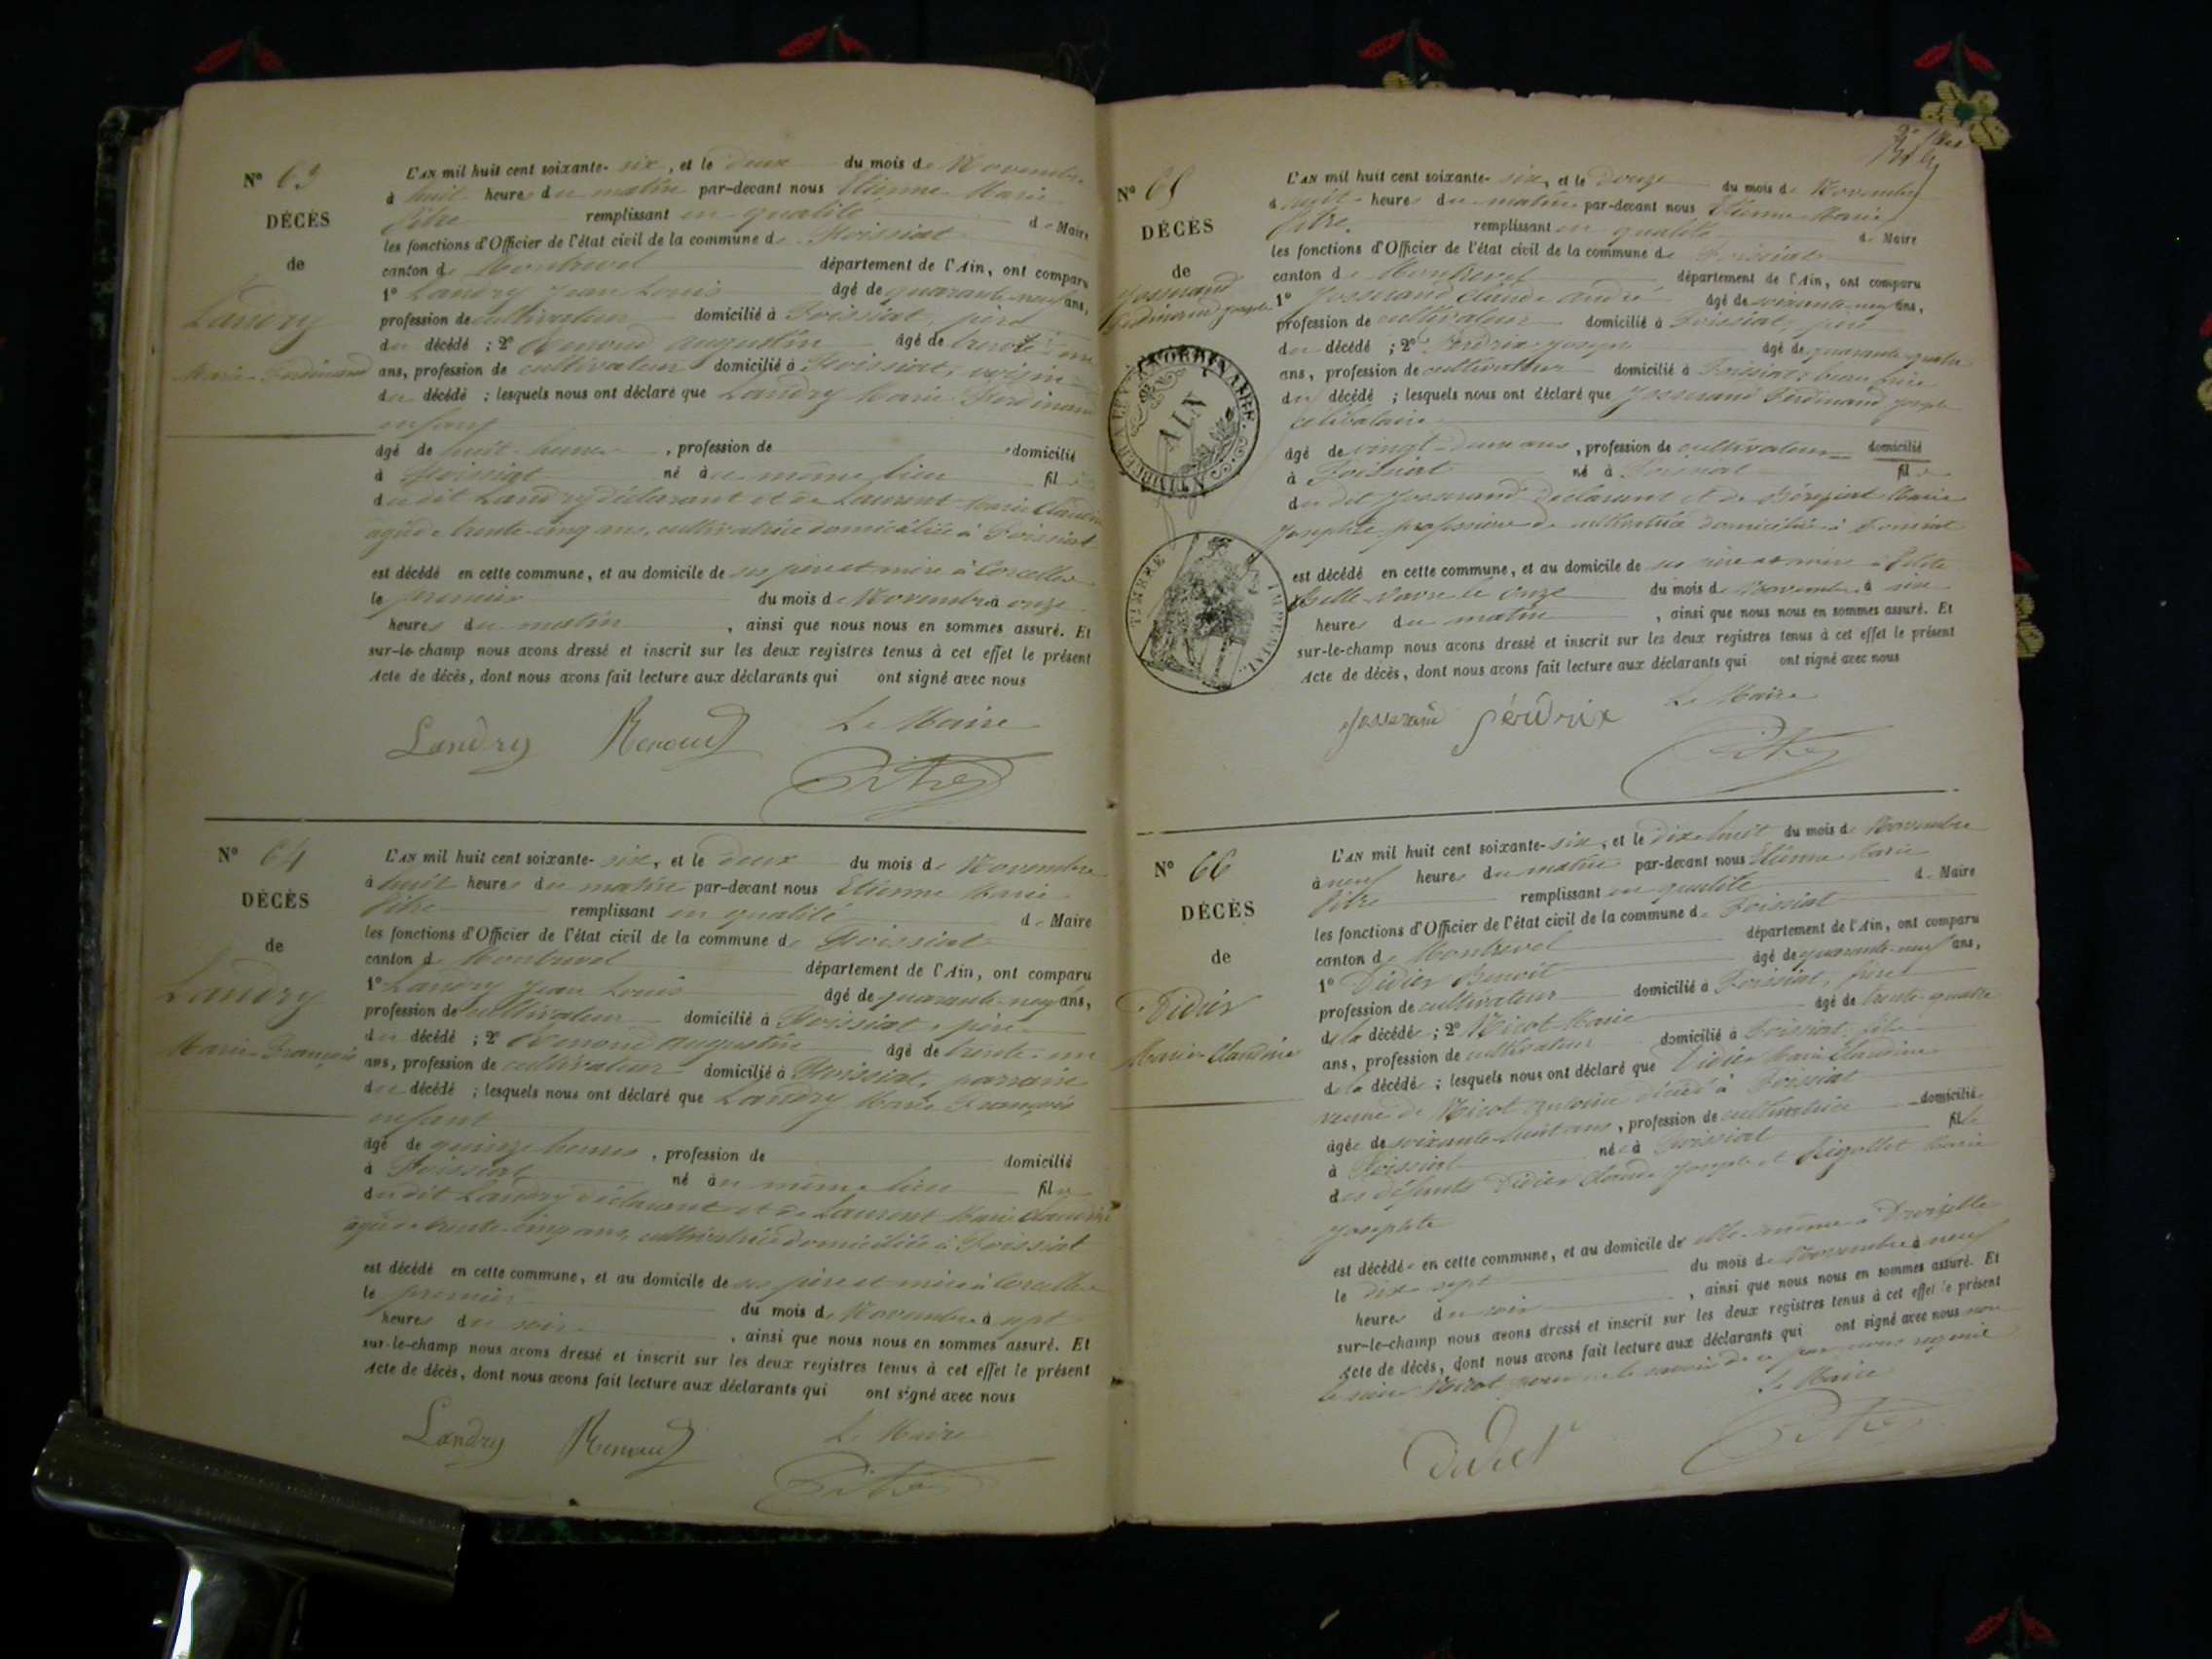 N° 63
DÉCÈS
de
Landry
Marie Ferdinand
L'AN mil huit cent soixante-six, et le deux du mois de Novembre
à huit heures du matin par-devant nous Etienne Marie
Pitre remplissant en qualité de Maire
les fonctions d'Officier de l'état civil de la commune de Foissiat
canton de Montrevel département de l'Ain, ont comparu
1° Landry Jean Louis âgé de quarante-neuf ans,
profession de cultivateur domicilié à Foissiat, père
du décédé ; 2° Renoud Augustin âgé de trente-un
ans, profession de cultivateur domicilié à Foissiat, voisin
du décédé ; lesquels nous ont déclaré que Landry Marie Ferdinand
enfant
âgé de huit heures, profession de domicilié
à Foissiat né au même lieu fils
du dit Landry déclarant et de Laurent Marie Claudine
agée de trente-cinq ans, cultivatrice domiciliée à Foissiat
est décédé en cette commune, et au domicile de ses père et mère à Corcelles
le premier du mois de Novembre à onze
heures du matin, ainsi que nous nous en sommes assuré. Et
sur-le-champ nous avons dressé et inscrit sur les deux registres tenus à cet effet le présent
Acte de décès, dont nous avons fait lecture aux déclarants qui ont signé avec nous
Landry Renoud Le Maire
Pitre
N° 64
DÉCÈS
de
Landry
Marie François
L'AN mil huit cent soixante-six, et le deux du mois de Novembre
à huit heures du matin par-devant nous Etienne Marie
Pitre remplissant en qualité de Maire
les fonctions d'Officier de l'état civil de la commune de Foissiat
canton de Montrevel département de l'Ain, ont comparu
1° Landry Jean Louis âgé de quarante-neuf ans,
profession de cultivateur domicilié à Foissiat, père
du décédé ; 2° Renoud Augustin âgé de trente-un
ans, profession de cultivateur domicilié à Foissiat, parrain
du décédé ; lesquels nous ont déclaré que Landry Marie François
enfant
âgé de quinze heures, profession de domicilié
à Foissiat né au même lieu fils
du dit Landry déclarant et de Laurent Marie Claudine
agée de trente-cinq ans, cultivatrice domiciliée à Foissiat
est décédé en cette commune, et au domicile de ses père et mère à Corcelles
le premier du mois de Novembre à sept
heures du soir, ainsi que nous nous en sommes assuré. Et
sur-le-champ nous avons dressé et inscrit sur les deux registres tenus à cet effet le présent
Acte de décès, dont nous avons fait lecture aux déclarants qui ont signé avec nous
Landry Renoud Le Maire
Pitre
N° 65
DÉCÈS
de
Josserand
Ferdinand Joseph
AIN
TIMBRE IMPERIAL
L'AN mil huit cent soixante-six, et le douze du mois de Novembre
à huit heures du matin par-devant nous Etienne Marie
Pitre remplissant en qualité de Maire
les fonctions d'Officier de l'état civil de la commune de Foissiat
canton de Montrevel département de l'Ain, ont comparu
1° Josserand Claude André âgé de soixante-neuf ans,
profession de cultivateur domicilié à Foissiat, père
du décédé ; 2° Perdrix Joseph âgé de quarante-quatre
ans, profession de cultivateur domicilié à Foissiat, beau frère
du décédé ; lesquels nous ont déclaré que Josserand Ferdinand Joseph
célibataire
âgé de vingt-deux ans, profession de cultivateur domicilié
à Foissiat né à Foissiat fils
du dit Josserand déclarant et de Béréziat Marie
Josephte profession de cultivatrice domiciliée à Foissiat
est décédé en cette commune, et au domicile de ses père et mère à
Belle vavre le onze du mois de Novembre à six
heures du matin, ainsi que nous nous en sommes assuré. Et
sur-le-champ nous avons dressé et inscrit sur les deux registres tenus à cet effet le présent
Acte de décès, dont nous avons fait lecture aux déclarants qui ont signé avec nous
Josserand Perdrix Le Maire
Pitre
N° 66
DÉCÈS
de
Didier
Marie Claudine
L'AN mil huit cent soixante-six, et le dix-huit du mois de Novembre
à neuf heures du matin par-devant nous Etienne Marie
Pitre remplissant en qualité de Maire
les fonctions d'Officier de l'état civil de la commune de Foissiat
canton de Montrevel département de l'Ain, ont comparu
1° Didier Benoit âgé de quarante-neuf ans,
profession de cultivateur domicilié à Foissiat, frère
de la décédée ; 2° Nicot Marie âgé de trente-quatre
ans, profession de cultivateur domicilié à Foissiat, fils
de la décédée ; lesquels nous ont déclaré que Didier Marie Claudine
veuve de Nicot Antoine décédé à Foissiat
âgée de soixante-huit ans, profession de cultivatrice domicilié
à Foissiat née à Foissiat fille
des défunts Didier Claude Joseph et Rigollet Marie
Josephte
est décédée en cette commune, et au domicile de elle-même à
le dix-sept du mois de Novembre à neuf
heures du soir, ainsi que nous nous en sommes assuré. Et
sur-le-champ nous avons dressé et inscrit sur les deux registres tenus à cet effet le présent
Acte de décès, dont nous avons fait lecture aux déclarants qui ont signé avec nous non
le sieur Nicot pour ne le savoir de ce par nous requis
Le Maire
Pitre